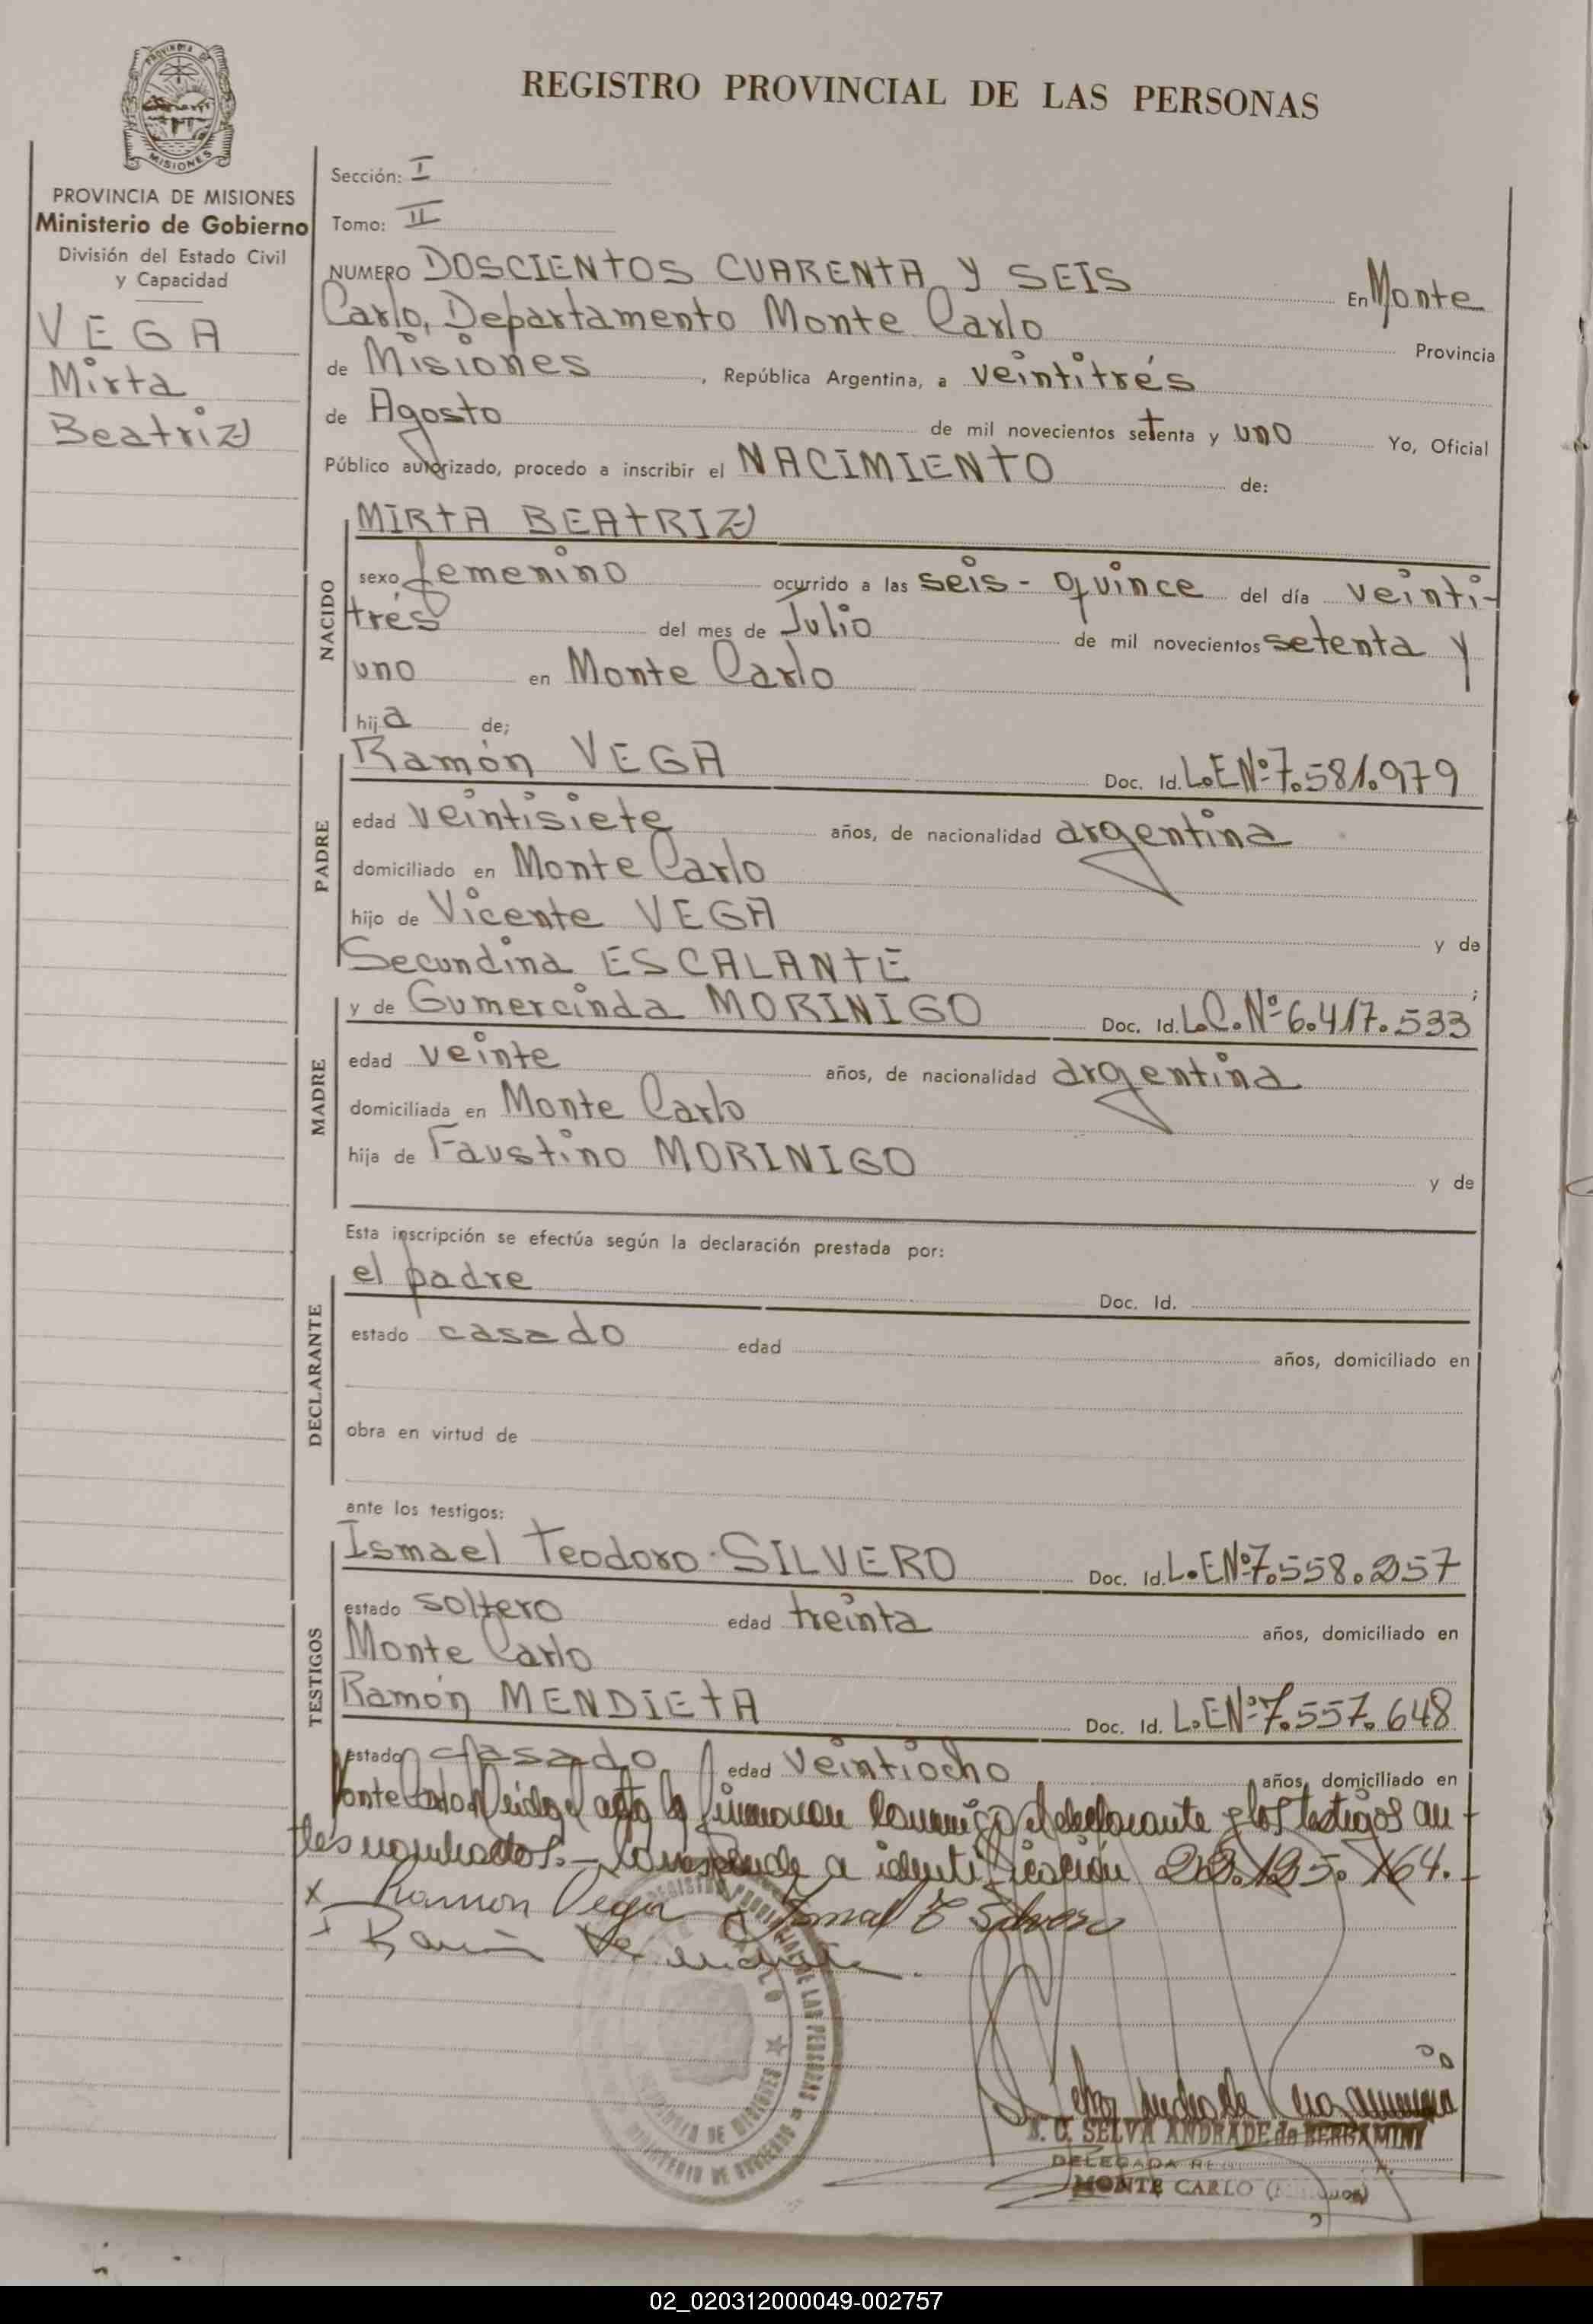 REGISTRO PROVINCIAL DE LAS PERSONAS
PROVINCIA DE MISIONES
Ministerio de Gobierno
División del Estado Civil
y Capacidad
VEGA
Mirta
Beatriz
Sección: I
Tomo: II
NUMERO DOSCIENTOS CUARENTA Y SEIS En Monte
Carlo, Departamento Monte Carlo Provincia
de Misiones, República Argentina, a veintitrés
de Agosto de mil novecientos setenta y uno Yo, Oficial
Público autorizado, procedo a inscribir el NACIMIENTO de:
NACIDO
MIRTA BEATRIZ
sexo femenino ocurrido a las seis - quince del día veinti-
trés del mes de Julio de mil novecientos setenta y
uno en Monte Carlo
hija de;
PADRE
Ramón VEGA Doc. Id. L.E Nº 7.581.979
edad veintisiete años, de nacionalidad argentina
domiciliado en Monte Carlo
hijo de Vicente VEGA y de
Secundina ESCALANTE ;
MADRE
y de Gumercinda MORINIGO Doc. Id. L.C. Nº 6.417.533
edad veinte años, de nacionalidad argentina
domiciliada en Monte Carlo
hija de Faustino MORINIGO y de
Esta inscripción se efectúa según la declaración prestada por:
DECLARANTE
el padre Doc. Id.
estado casado edad años, domiciliado en
obra en virtud de
ante los testigos:
TESTIGOS
Ismael Teodoro SILVERO Doc. Id. L.E Nº 7.558.257
estado soltero edad treinta años, domiciliado en
Monte Carlo
Ramón MENDIETA Doc. Id. L.E Nº 7.557.648
estado casado edad veintiocho años, domiciliado en
Monte Carlo. Leida el acta la firmaron conmigo el declarante y los testigos an-
tes nombrados.- Corresponde a identificación 22.125.164.-
x Ramon Vega x Ismael T Silvero
x Ramón Mendieta
S. C. SELVA ANDRADE de BERGAMINI
DELEGADA
MONTE CARLO
02_020312000049-002757